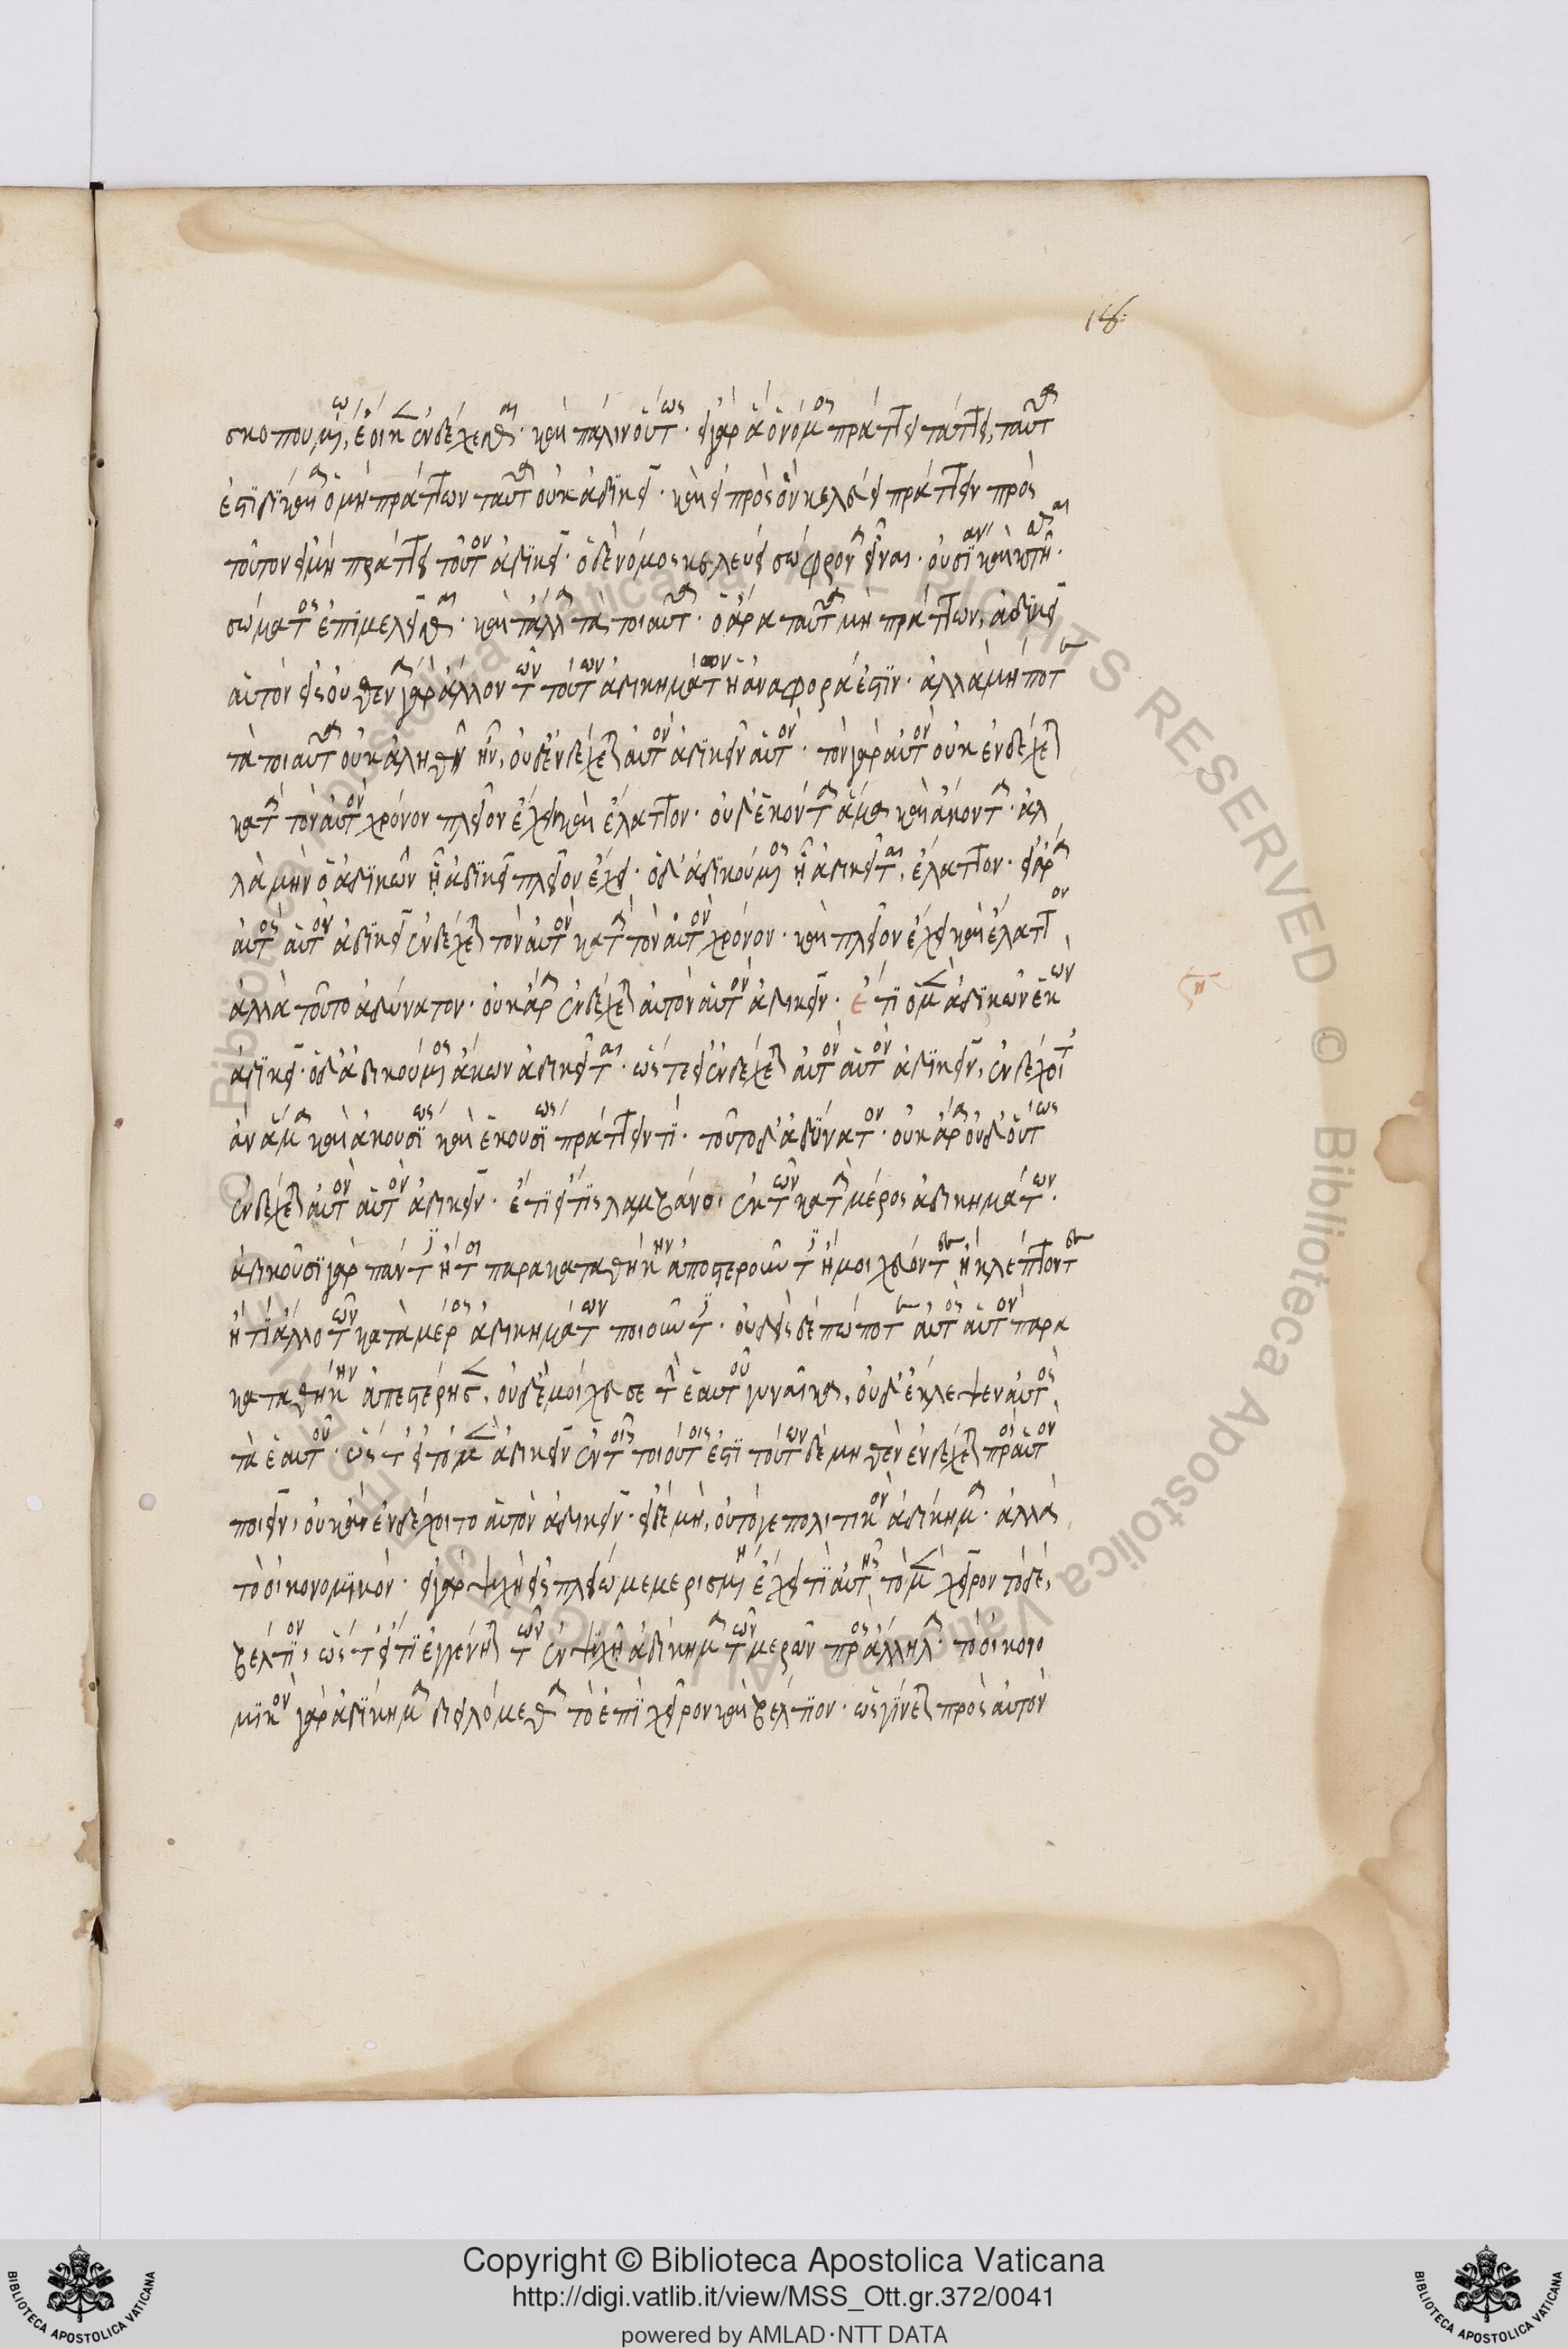 18
σκοπουμένῳ, ἔοικεν ἐνδέχεσθαι· καὶ πάλιν οὕτως· εἰ γὰρ ἃ ὁ νόμος πράττειν τάττει, ταῦτα
ἐστὶ δίκαια ὁ μὴ πράττων ταῦτα οὐκ ἀδικεῖ· καὶ εἰ πρὸς ὃν κελεύει πράττειν πρὸς
τοῦτον εἰ μὴ πράττει τοῦτον ἀδικεῖ· ὁ δὲ νόμος κελεύει σώφρονα εἶναι· οὐσίαν κτᾶσθαι·
σώματος ἐπιμελεῖσθαι· καὶ τἄλλα τὰ τοιαῦτα· ὁ ἄρα ταῦτα μὴ πράττων, ἀδικεῖ
αὑτόν εἰς οὐθένα γὰρ ἄλλον τῶν τούτων ἀδικημάτων ἡ ἀναφορά ἐστιν· ἀλλὰ μή ποτε
τὰ τοιαῦτα οὐκ ἀληθῆ ἦν, οὐδ' ἐνδέχεται αὐτὸν ἀδικεῖν αὑτόν· τὸν γὰρ αὐτὸν οὐκ ἐνδέχεται
κατὰ τὸν αὐτὸν χρόνον πλεῖον ἔχειν καὶ ἔλαττον· οὐδ' ἑκόντα ἅμα καὶ ἄκοντα· ἀλ
λὰ μὴν ὁ ἀδικῶν ᾗ ἀδικεῖ πλεῖον ἔχει· ὁ δ' ἀδικούμενος ᾗ ἀδικεῖται, ἔλαττον· εἰ ἄρα
αὐτὸς αὑτὸν ἀδικεῖ ἐνδέχεται τὸν αὐτὸν κατὰ τὸν αὐτὸν χρόνον· καὶ πλεῖον ἔχειν καὶ ἔλαττον
ἀλλὰ τοῦτο ἀδύνατον· οὐκ ἄρα ἐνδέχεται αὐτὸν αὑτὸν ἀδικεῖν· ἔτι ὁ μὲν ἀδικῶν ἑκὼν
ἀδικεῖ· ὁ δ' ἀδικούμενος ἄκων ἀδικεῖται· ὥστε εἰ ἐνδέχεται αὐτὸν αὑτὸν ἀδικεῖν, ἐνδέχοιτ'
ἂν ἅμα καὶ ἀκουσίως καὶ ἑκουσίως πράττειν τι· τοῦτο δ' ἀδύνατον· οὐκ ἄρα οὐδ' οὕτως
ἐνδέχεται αὐτὸν αὑτὸν ἀδικεῖν· ἔτι εἴ τις λαμβάνοι ἐκ τῶν κατὰ μέρος ἀδικημάτων·
ἀδικοῦσι γὰρ πάντες ἤτοι παρακαταθήκην ἀποστεροῦντες ἢ μοιχεύοντες ἢ κλέπτοντες
ἤ τι ἄλλο τῶν κατὰ μέρος ἀδικημάτων ποιοῦντες· οὐδεὶς δὲ πώποτε αὐτὸς αὑτὸν παρα
καταθήκην ἀπεστέρησεν, οὐδ' ἐμοίχευσε τὴν ἑαυτοῦ γυναῖκα, οὐδ' ἔκλεψεν αὐτὸς
τὰ ἑαυτοῦ· ὥστ' εἰ τὸ μὲν ἀδικεῖν ἐν τοῖς τοιούτοις ἐστὶ τούτων δὲ μηθὲν ἐνδέχεται πρὸς αὑτὸν
ποιεῖν, οὐκ ἂν ἐνδέχοιτο αὑτὸν ἀδικεῖν· εἰ δὲ μή, οὐ τό γε πολιτικὸν ἀδίκημα· ἀλλὰ
τὸ οἰκονομικόν· εἰ γὰρ ψυχὴ εἰς πλείω μεμερισμένη ἔχει τι αὑτῆς τὸ μὲν χεῖρον τὸ δὲ,
βέλτιον, ὥστ' εἴ τι ἐγγίνεται τῶν ἐν ψυχῇ ἀδίκημα τῶν μερῶν πρὸς ἄλληλα· τὸ οἰκονο
μικὸν γὰρ ἀδίκημα διειλόμεθα τὸ ἐπὶ χεῖρον καὶ βέλτιον· ὡς γίνεται πρὸς αὑτὸν
Copyright © Biblioteca Apostolica Vaticana
http://digi.vatlib.it/view/MSS_Ott.gr.372/0041
powered by AMLAD·NTT DATA